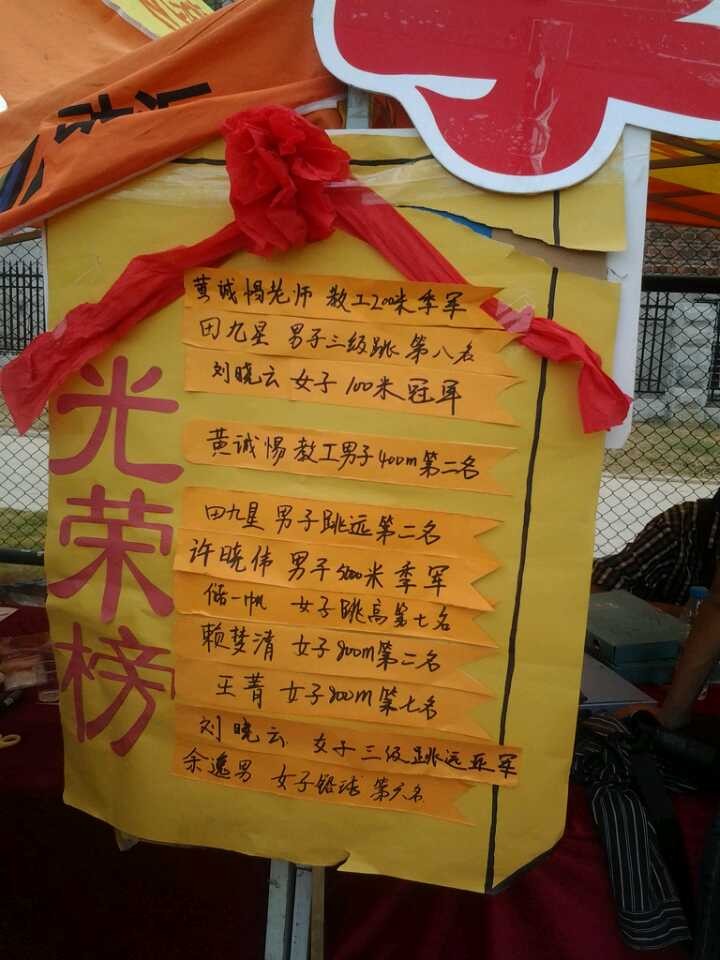 光荣榜
黄诚惕老师 教工200米季军
田九星 男子三级跳 第八名
刘晓云 女子 100米冠军
黄诚惕 教工男子400m第二名
田九星 男子跳远第二名
许晓伟 男子5000米季军
储一帆 女子跳高第七名
赖梦清 女子800m第二名
王菁 女子800m第七名
刘晓云 女子三级跳远亚军
余逸男 女子铅球 第六名